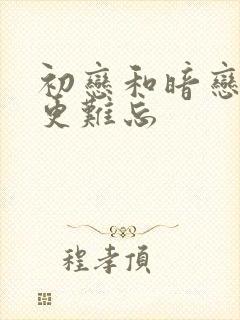 初戀和暗戀
更難忘
程孝頂